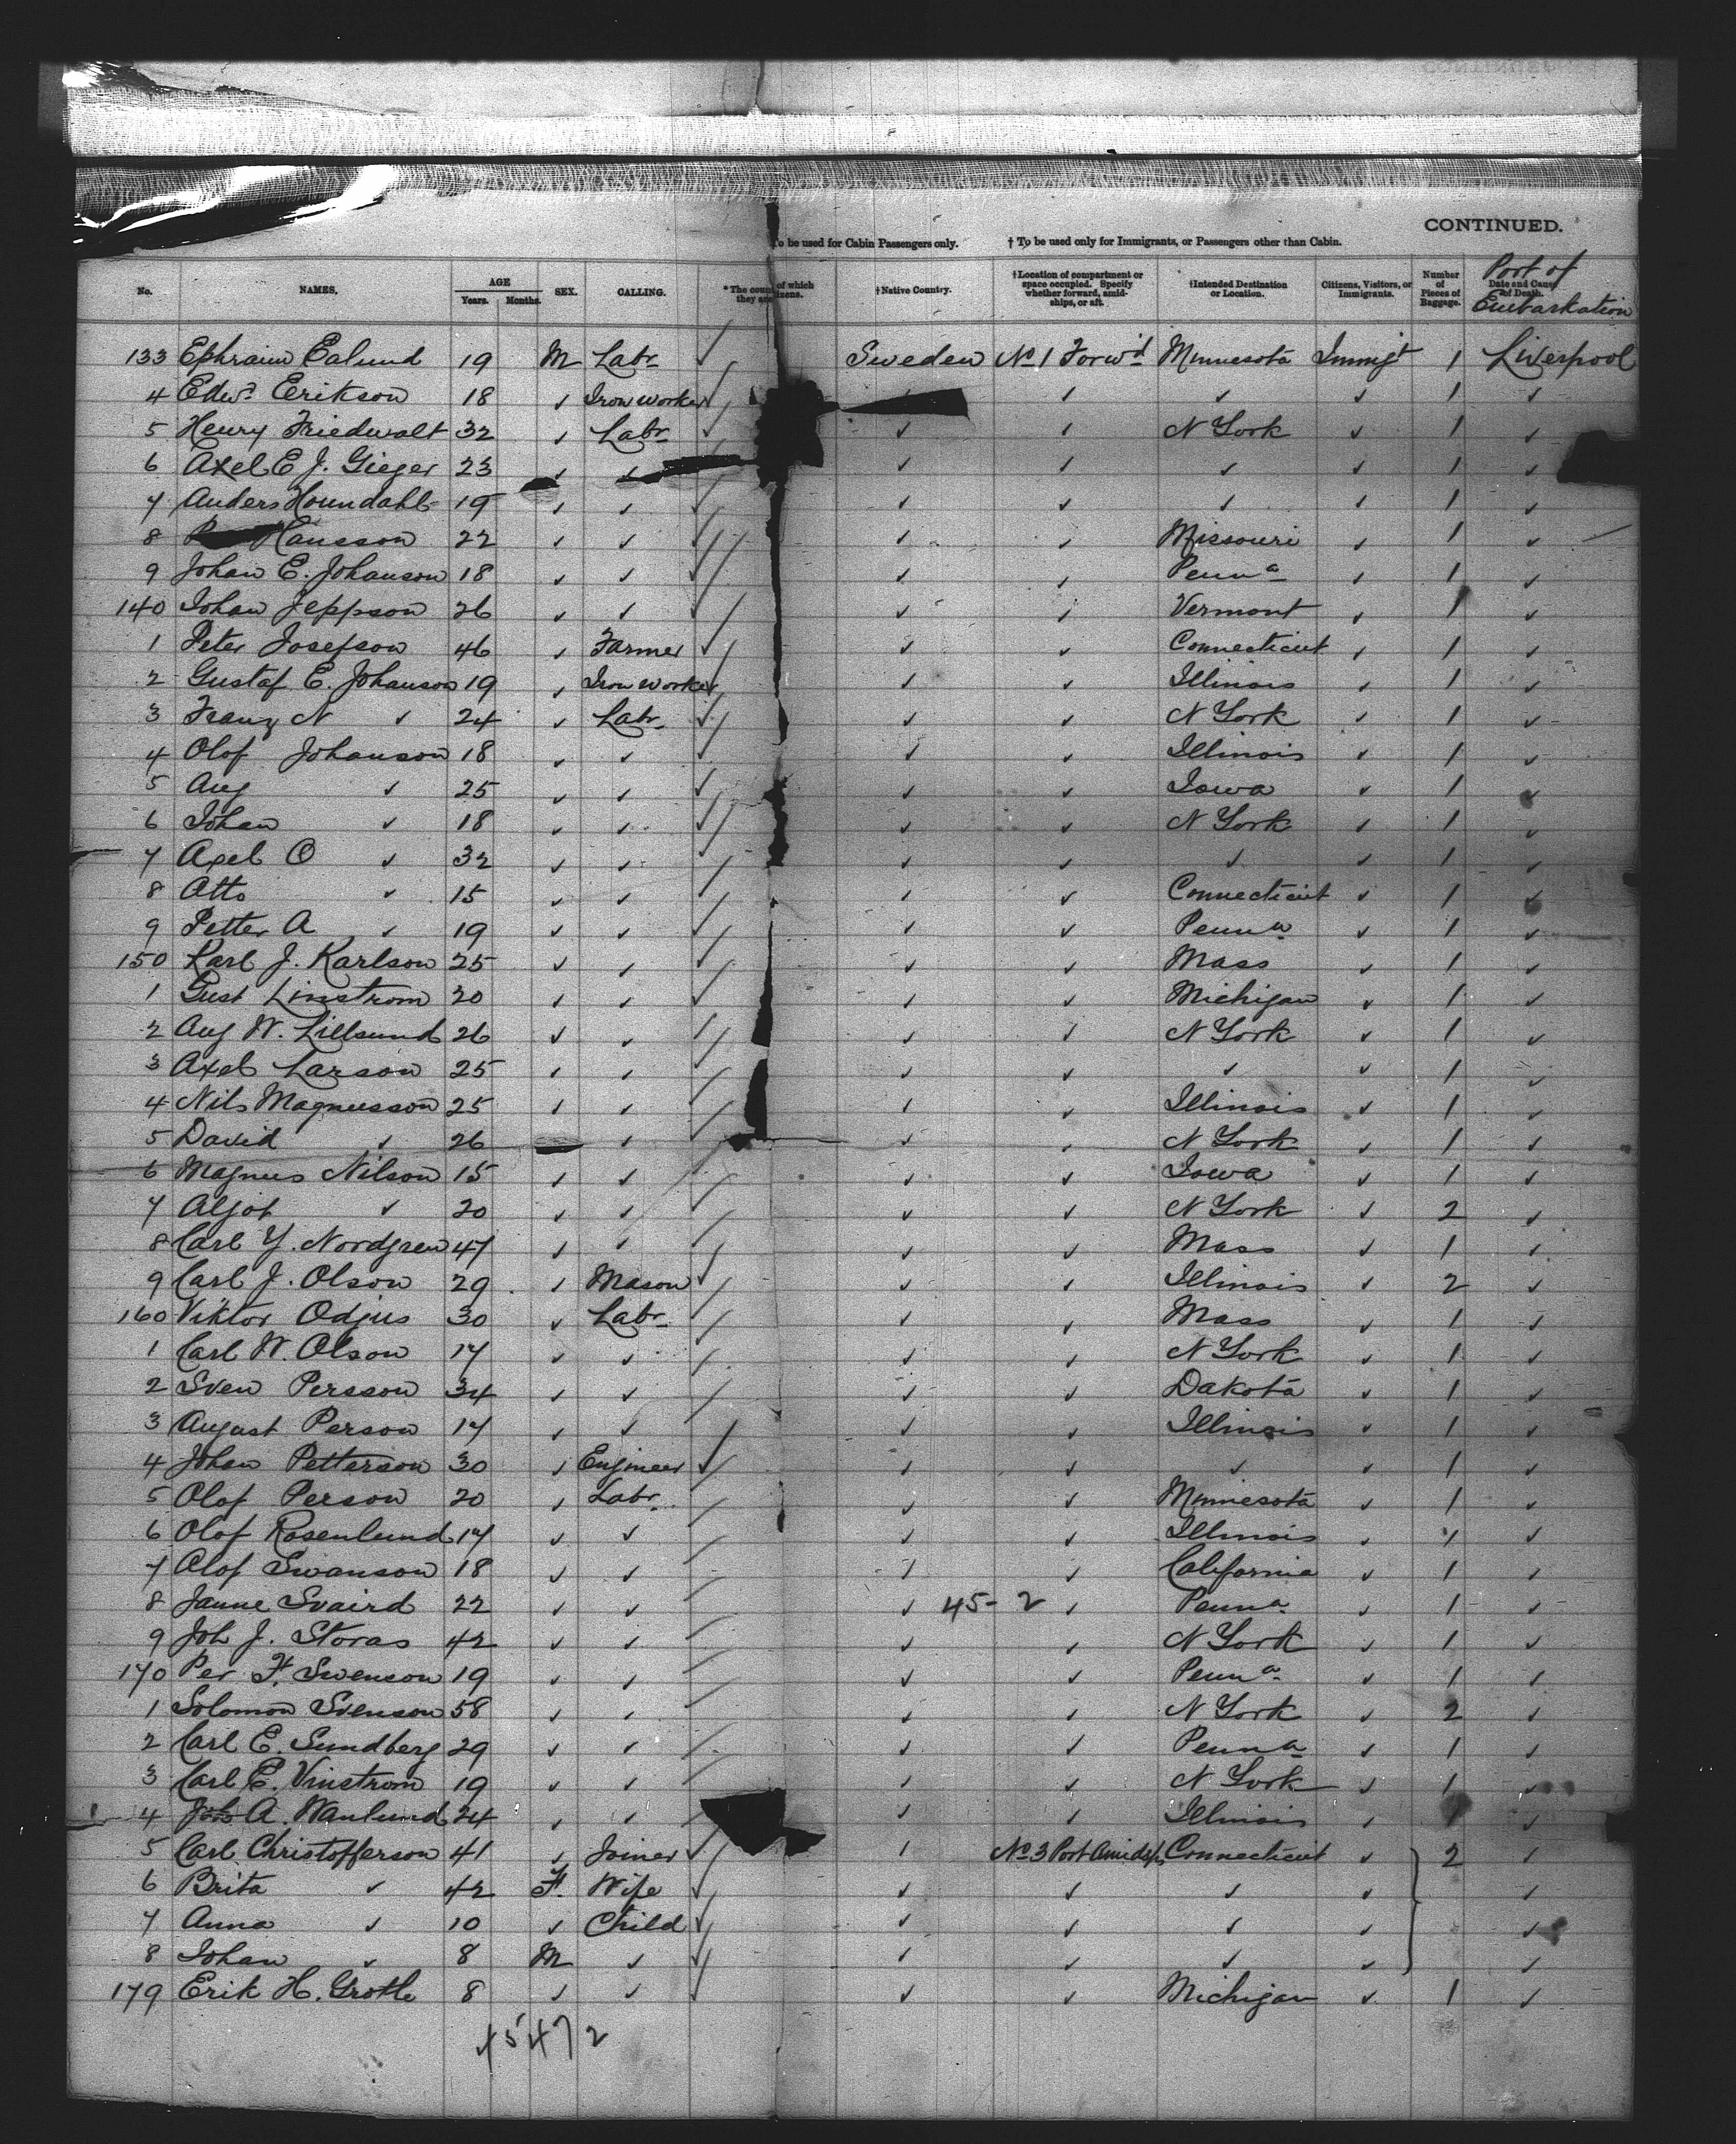 CONTINUED.
To be used for Cabin Passengers only. † To be used only for Immigrants, or Passengers other than Cabin.
No. NAMES. AGE Years. Months. SEX. CALLING. * The of which they †Native Country. †Location of compartment or space occupied. Specify whether forward, amidships, or aft. †Intended Destination or Location. Citizens, Visitors, or Immigrants. Number of Pieces of Baggage. Date and Cause of Death. Port of Embarkation
133 Ephraim Ealund 19 M Labr ✓ Sweden No 1 Forwd Minnesota Immigt 1 Liverpool
4 Edwd Erikson 18 ✓ Iron worker ✓ ✓ ✓ ✓ 1 ✓
5 Henry Friedwalt 32 ✓ Labr ✓ ✓ ✓ N York ✓ 1 ✓
6 Axel E J. Gieger 23 ✓ ✓ ✓ ✓ ✓ ✓ 1 ✓
7 Anders Houndahl 19 ✓ ✓ ✓ ✓ ✓ ✓ ✓ 1 ✓
8 Hansson 22 ✓ ✓ ✓ ✓ ✓ Missouri ✓ 1 ✓
9 Johan E. Johanson 18 ✓ ✓ ✓ ✓ ✓ Penna ✓ 1 ✓
140 Johan Jeppson 26 ✓ ✓ ✓ ✓ ✓ Vermont ✓ 1 ✓
1 Peter Josefson 46 ✓ Farmer ✓ ✓ ✓ Connecticut ✓ 1 ✓
2 Gustaf E. Johanson 19 ✓ Iron worker ✓ ✓ Illinois ✓ 1 ✓
3 Franz N ✓ 24 ✓ Labr ✓ ✓ ✓ N York ✓ 1 ✓
4 Olof Johanson 18 ✓ ✓ ✓ ✓ ✓ Illinois ✓ 1 ✓
5 Aug ✓ 25 ✓ ✓ ✓ ✓ ✓ Iowa ✓ 1 ✓
6 Johan ✓ 18 ✓ ✓ ✓ ✓ ✓ N York ✓ 1 ✓
7 Axel O ✓ 32 ✓ ✓ ✓ ✓ ✓ ✓ ✓ 1 ✓
8 Otto ✓ 15 ✓ ✓ ✓ ✓ ✓ Connecticut ✓ 1 ✓
9 Petter A ✓ 19 ✓ ✓ ✓ ✓ ✓ Penna ✓ 1 ✓
150 Karl J. Karlson 25 ✓ ✓ ✓ ✓ ✓ Mass ✓ 1 ✓
1 Gust Linstrom 20 ✓ ✓ ✓ ✓ ✓ Michigan ✓ 1 ✓
2 Aug W. Lillsund 26 ✓ ✓ ✓ ✓ ✓ N York ✓ 1 ✓
3 Axel Larson 25 ✓ ✓ ✓ ✓ ✓ ✓ ✓ 1 ✓
4 Nils Magnusson 25 ✓ ✓ ✓ ✓ ✓ Illinois ✓ 1 ✓
5 David ✓ 26 ✓ ✓ ✓ ✓ N York ✓ 1 ✓
6 Magnus Nilson 15 ✓ ✓ ✓ ✓ ✓ Iowa ✓ 1 ✓
7 Aljot ✓ 20 ✓ ✓ ✓ ✓ ✓ N York ✓ 2 ✓
8 Carl Y. Nordgren 47 ✓ ✓ ✓ ✓ ✓ Mass ✓ 1 ✓
9 Carl J. Olson 29 ✓ Mason ✓ ✓ ✓ Illinois ✓ 2 ✓
160 Viktor Odjus 30 ✓ Labr ✓ ✓ ✓ Mass ✓ 1 ✓
1 Carl W. Olson 17 ✓ ✓ ✓ ✓ ✓ N York ✓ 1 ✓
2 Sven Persson 34 ✓ ✓ ✓ ✓ ✓ Dakota ✓ 1 ✓
3 August Person 17 ✓ ✓ ✓ ✓ ✓ Illinois ✓ 1 ✓
4 Johan Petterson 30 ✓ Engineer ✓ ✓ ✓ ✓ ✓ 1 ✓
5 Olof Person 20 ✓ Labr ✓ ✓ ✓ Minnesota ✓ 1 ✓
6 Olof Rosenlund 17 ✓ ✓ ✓ ✓ ✓ Illinois ✓ 1 ✓
7 Olof Swanson 18 ✓ ✓ ✓ ✓ ✓ California ✓ 1 ✓
8 Janne Svaird 22 ✓ ✓ ✓ ✓ 45- 2 ✓ Penna ✓ 1 ✓
9 Joh J. Storas 42 ✓ ✓ ✓ ✓ ✓ N York ✓ 1 ✓
170 Per F. Swenson 19 ✓ ✓ ✓ ✓ ✓ Penna ✓ 1 ✓
1 Solomon Svenson 58 ✓ ✓ ✓ ✓ ✓ N York ✓ 2 ✓
2 Carl E. Sundberg 29 ✓ ✓ ✓ ✓ ✓ Penna ✓ 1 ✓
3 Carl E. Vinstrom 19 ✓ ✓ ✓ ✓ ✓ N York ✓ 1 ✓
4 A. Wanlund 24 ✓ ✓ ✓ ✓ Illinois ✓ 1 ✓
5 Carl Christofferson 41 ✓ Joiner ✓ ✓ No 3 Port Amidsps Connecticut ✓ 2 ✓
6 Brita ✓ 42 F. Wife ✓ ✓ ✓ ✓ ✓ ✓
7 Anna ✓ 10 ✓ Child ✓ ✓ ✓ ✓ ✓ ✓
8 Johan ✓ 8 M ✓ ✓ ✓ ✓ ✓ ✓ ✓
179 Erik H. Grotle 8 ✓ ✓ ✓ ✓ ✓ Michigan ✓ 1 ✓
45472